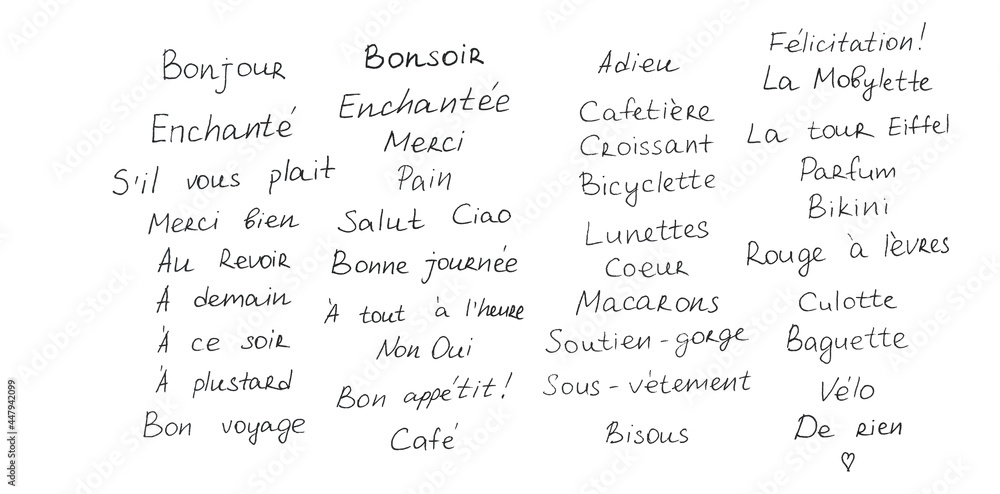 Bonjour
Enchanté
S'il vous plait
Merci bien
Au Revoir
À demain
À ce soir
À plustard
Bon voyage
Bonsoir
Enchantée
Merci
Pain
Salut Ciao
Bonne journée
À tout à l'heure
Non Oui
Bon appétit!
Café
Adieu
Cafetière
Croissant
Bicyclette
Lunettes
Coeur
Macarons
Soutien-gorge
Sous-vétement
Bisous
Félicitation!
La Mobylette
La tour Eiffel
Parfum
Bikini
Rouge à lèvres
Culotte
Baguette
Vélo
De rien
Adobe Stock | #447942099
Adobe Stock